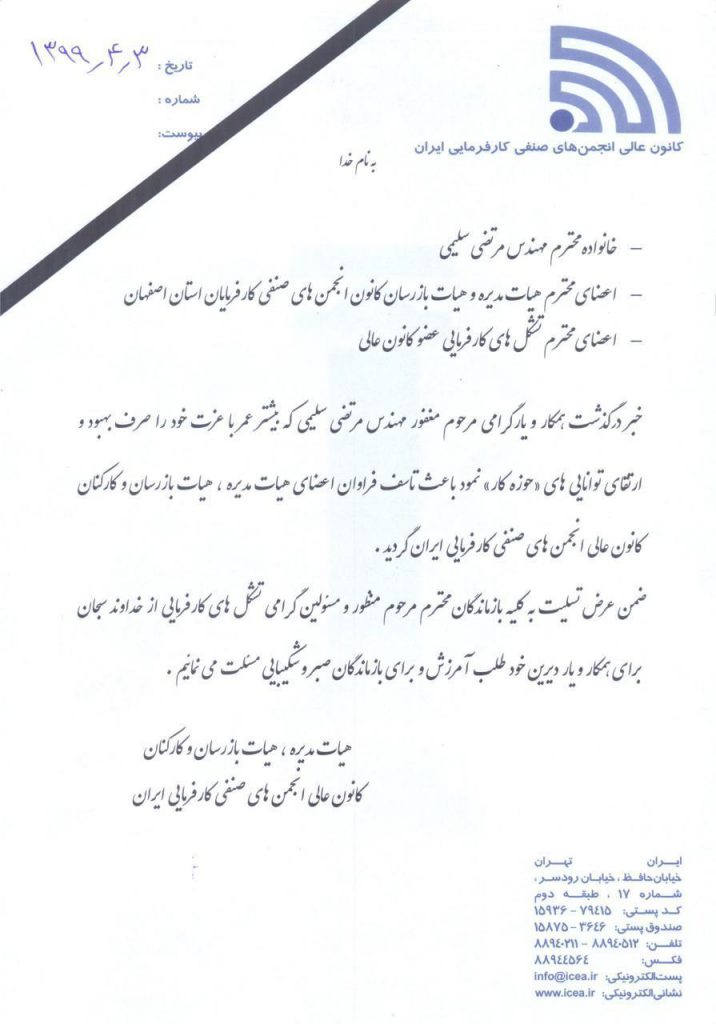 کانون عالی انجمن‌های صنفی کارفرمایی ایران
تاریخ : ۱۳۹۹٫۴٫۳
شماره :
پیوست:
به نام خدا
– خانواده محترم مهندس مرتضی سلیمی
– اعضای محترم هیات مدیره و هیات بازرسان کانون انجمن های صنفی کارفرمایان استان اصفهان
– اعضای محترم تشکل های کارفرمایی عضو کانون عالی
خبر درگذشت همکار و یار گرامی مرحوم مغفور مهندس مرتضی سلیمی که بیشتر عمر با عزت خود را صرف بهبود و
ارتقای توانایی های «حوزه کار» نمود باعث تاسف فراوان اعضای هیات مدیره ، هیات بازرسان و کارکنان
کانون عالی انجمن های صنفی کارفرمایی ایران گردید .
ضمن عرض تسلیت به کلیه بازماندگان محترم مرحوم منظور و مسئولین گرامی تشکل های کارفرمایی از خداوند سبحان
برای همکار و یار دیرین خود طلب آمرزش و برای بازماندگان صبر و شکیبایی مسئلت می نمائیم .
هیات مدیره ، هیات بازرسان و کارکنان
کانون عالی انجمن های صنفی کارفرمایی ایران
ایران تهران
خیابان حافظ ، خیابان رودسر ،
شماره ۱۷ ، طبقه دوم
کد پستی: ۷۹۴۱۵ – ۱۵۹۳۶
صندوق پستی: ۳۶۴۶ – ۱۵۸۷۵
تلفن: ۸۸۹۴۰۵۱۲ – ۸۸۹۴۰۲۱۱
فکس: ۸۸۹۴۴۵۶۴
پست‌الکترونیکی: info@icea.ir
نشانی‌الکترونیکی: www.icea.ir